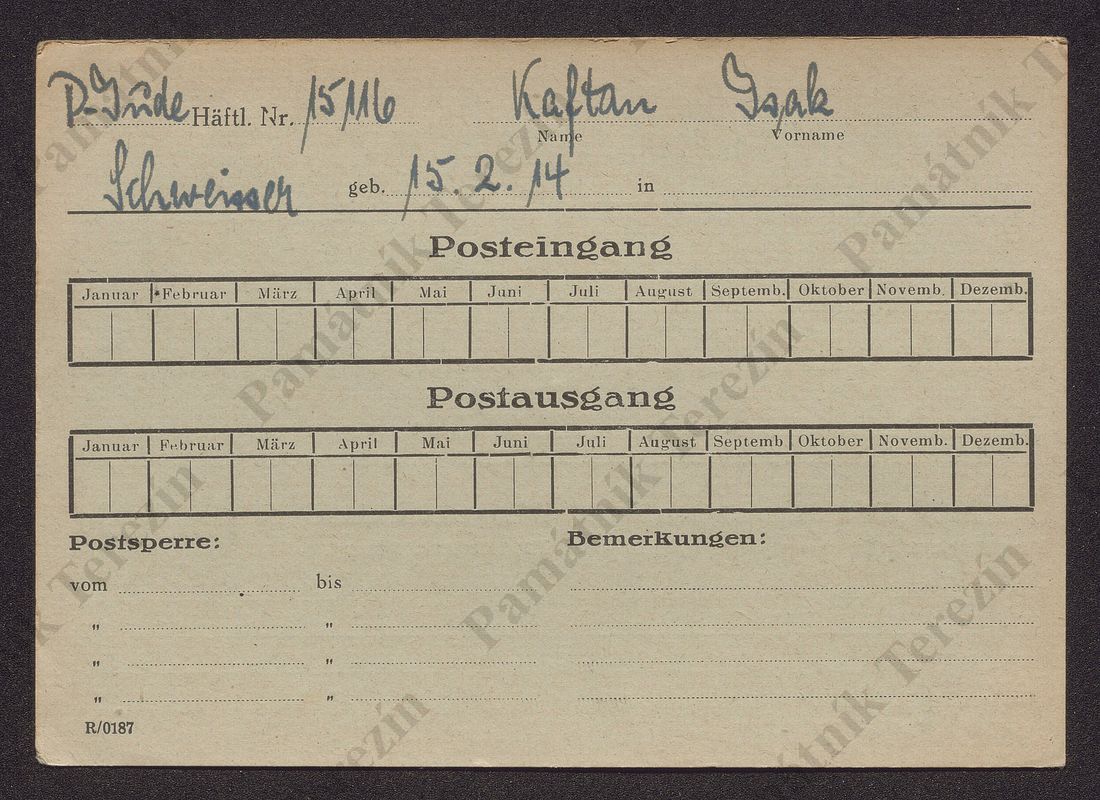 P-Jude Häftl. Nr. 15116 Kaftan Isak
Name Vorname
Schweisser geb. 15. 2. 14 in
Posteingang
Januar Februar März April Mai Juni Juli August Septemb. Oktober Novemb. Dezemb.
Postausgang
Januar Februar März April Mai Juni Juli August Septemb Oktober Novemb. Dezemb.
Postsperre: Bemerkungen:
vom bis
" "
" "
" "
R/0187
Památník Terezín